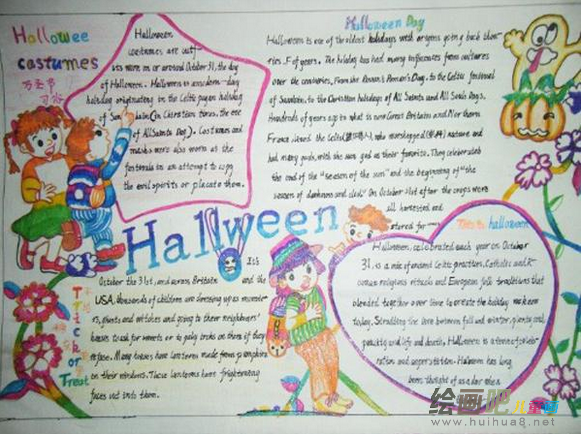 Hallowee
castumes
万圣节
Halloween
costumes are outf-
its worn on or around October 31, the day
of Halloween. Halloween is a modern-day
holiday originating in the Celtic pagan holiday
of Samhain (in Christian times, the eve
of All Saints Day). Costumes and
masks were also worn at the
festivals in an attempt to copy
the evil spirits or placate them.
Halloween Day
Halloween is one of the oldest holidays with origins going back thou-
sands of years. The holiday has had many influences from cultures
over the centuries. From the Roman's Pomona's Day, to the Celtic festival
of Samhain, to the Christian holidays of All Saints and All Souls Days.
Hundreds of years ago in what is now Great Britain and Northern
France lived the Celts who worshipped nature and
had many gods, with the sun god as their favorite. They celebrated
the end of the "season of the sun" and the beginning of "the
season of darkness and cold" On October 31st after the crops were
all harvested and
stored for
Hallween
It is
October the 31st, and across Britain and the
USA, thousands of children are dressing up as monste-
rs, ghosts and witches and going to their neighbours'
houses to ask for sweets or to play tricks on them if they
refuse. Many houses have lanterns made from pumpkins
on their windows. These lanterns have frightening
faces cut into them.
Trick or Treat
This is halloween
Halloween, celebrated each year on October
31, is a mix of ancient Celtic practices, Catholic and R-
oman religious rituals and European folk traditions that
blended together over time to create the holiday we know
today. Straddling the line between fall and winter, plenty and
paucity and life and death, Halloween is a time of celeb-
ration and superstition. Halloween has long
been thought of as a day when
绘画吧 儿童画
www.huihua8.net